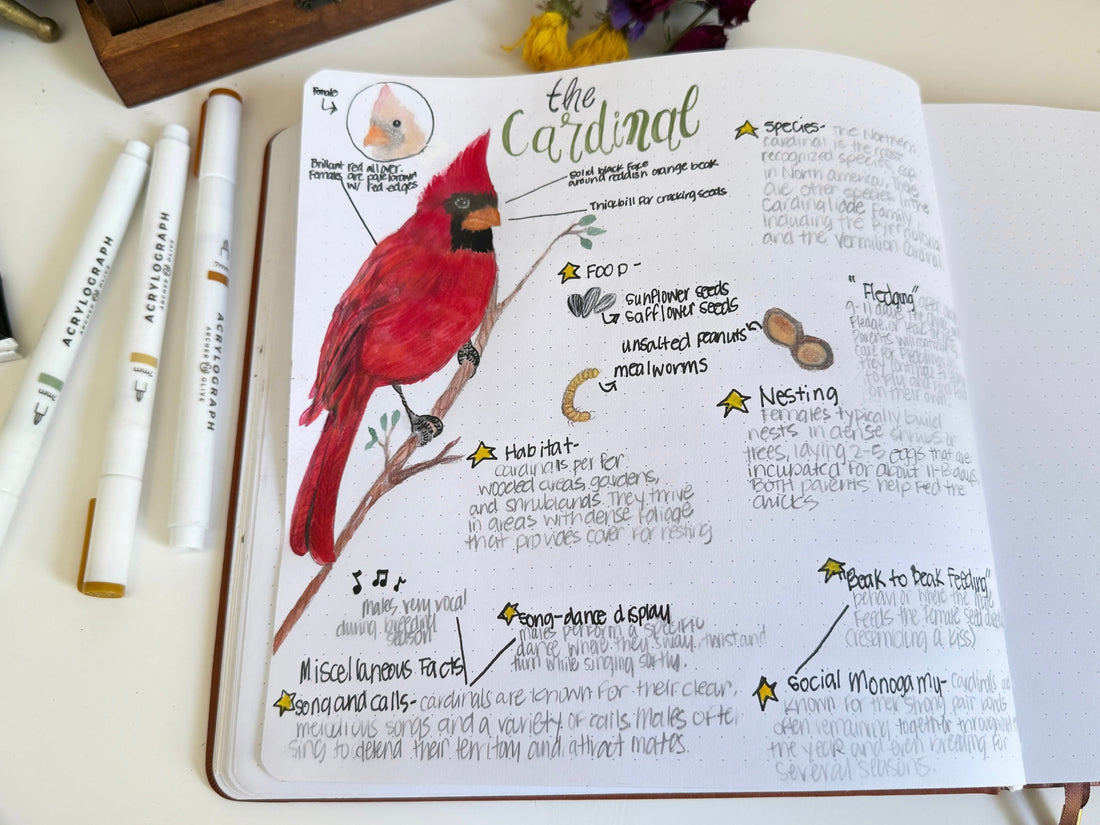 Female
the
Cardinal
Brilliant red all over.
Females are pale brown
w/ red edges
Solid black face
around reddish orange beak
Thick bill for cracking seeds
Species- The Northern
cardinal is the most
recognized species
in North America, there
are other species in the
Cardinalidae family
including the Pyrrhuloxia
and the Vermilion Cardinal.
Food-
sunflower seeds
safflower seeds
unsalted peanuts
mealworms
"Fledging" after
9-11 days the
Fledge, or
parents will continue to
care for fledglings
they continue to
to fly and find food
on their own.
Nesting
Females typically build
nests in dense shrubs or
trees, laying 2-5 eggs that are
incubated for about 11-13 days.
BOTH parents help fed the
chicks
Habitat-
cardinals perfer
wooded areas, gardens,
and shrublands. They thrive
in areas with dense foliage
that provides cover for nesting
males very vocal
during breeding
season
song-dance display
males perform a specific
dance where they sway, twist and
turn while singing softly.
"Beak to Beak Feeding"
behavior where the male
feeds the female seed
(resembling a kiss)
Miscellaneous Facts
song and calls- cardinals are known for their clear,
melodious songs and a variety of calls. Males often
sing to defend their territory and attract mates.
Social Monogamy- cardinals are
known for their strong pair bonds
often remaining together throughout
the year and even breeding for
several seasons.
ACRYLOGRAPH
ARCHER & OLIVE
3mm
ACRYLOGRAPH
ARCHER & OLIVE
3mm
ACRYLOGRAPH
ARCHER & OLIVE